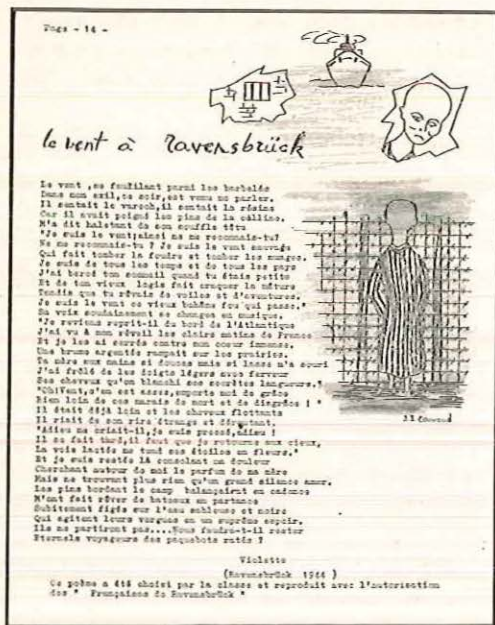 Page - 14 -
le vent à Ravensbrück
Le vent, se faufilant parmi les barbelés
Dans mon exil, ce soir, est venu me parler.
Il sentait le varech, il sentait la résine
Car il avait peigné les pins de la colline.
M'a dit haletant de son souffle têtu
"Je suis le vent; ainsi ne me reconnais-tu?
Ne me reconnais-tu ? Je suis le vent sauvage
Qui fait tomber la foudre et tomber les nuages.
Je suis de tous les temps et de tous les pays
J'ai bercé ton sommeil quand tu étais petite
Et de ton vieux logis fait craquer la mâture
Tandis que tu rêvais de voiles et d'aventures.
Je suis le vent ce vieux bohème fou qui passe."
Sa voix soudainement se changea en musique.
"Je reviens reprit-il du bord de l'Atlantique
J'ai vu à mon réveil les clairs matins de France
Et je les ai serrés contre mon coeur immense.
Une brume argentée rampait sur les prairies.
Ta mère aux mains si douces mais si lasse m'a souri
J'ai frôlé de mes doigts légers avec ferveur
Ses cheveux qu'on blanchi ses secrètes langueurs."
"Oh! Vent, m'en est assez, emporte moi de grâce
Bien loin de ces marais de mort et de disgrâce ! "
Il était déjà loin et les cheveux flottants
Il riait de son rire étrange et déroutant.
"Adieu me criait-il, je suis pressé, adieu !
Il se fait tard, il faut que je retourne aux cieux,
La voie lactée me tend ses étoiles en fleurs."
Et je suis restée là consolant ma douleur
Cherchant autour de moi le parfum de ma mère
Mais ne trouvant plus rien qu'un grand silence amer.
Les pins bordant le camp balançaient en cadence
M'ont fait rêver de bateaux en partance
Subitement figés sur l'eau sableuse et noire
Qui agitent leurs vergues en un suprême espoir.
Ils ne partiront pas....Nous faudra-t-il rester
Eternels voyageurs des paquebots ratés ?
Violette
(Ravensbrück 1944 )
Ce poème a été choisi par la classe et reproduit avec l'autorisation
des " Françaises de Ravensbrück "